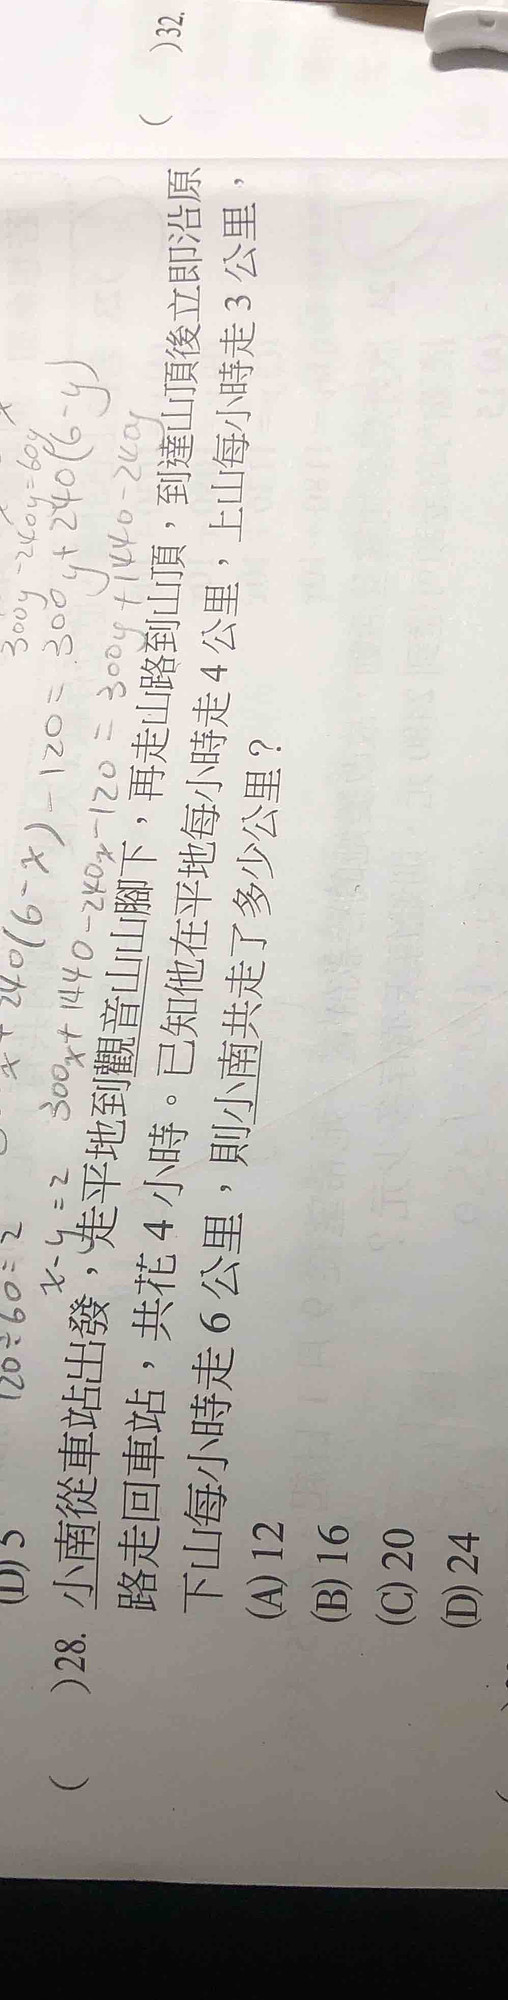 (D) 5
120÷60=2
+ 240(6-x)-120=300y+240(6-y)
300y-240y=60y
x-y=2
300x+1440-240x-120=300y+1440-240y
( )28. 小南從車站出發，走平地到觀音山山腳下，再走山路到山頂，到達山頂後立即沿原
路走回車站，共花 4 小時。已知他在平地每小時走 4 公里，上山每小時走 3 公里，
下山每小時走 6 公里，則小南共走了多少公里？
(A) 12
(B) 16
(C) 20
(D) 24
( )32.